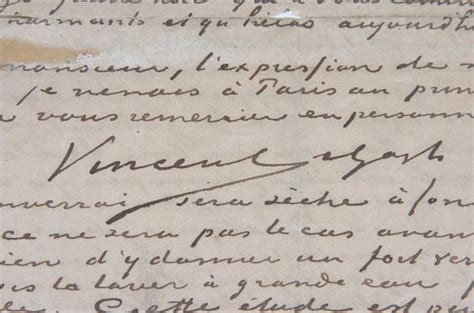 charmants et qu'hélas aujourdh
monsieur, l'expression de
je venais à Paris au prin
vous remercier en personn
Vincent van Gogh
enverrai sera sèche à fon
ce ne sera pas le cas avan
bien d'y donner un fort ver
la laver à grande eau
Cette étude est